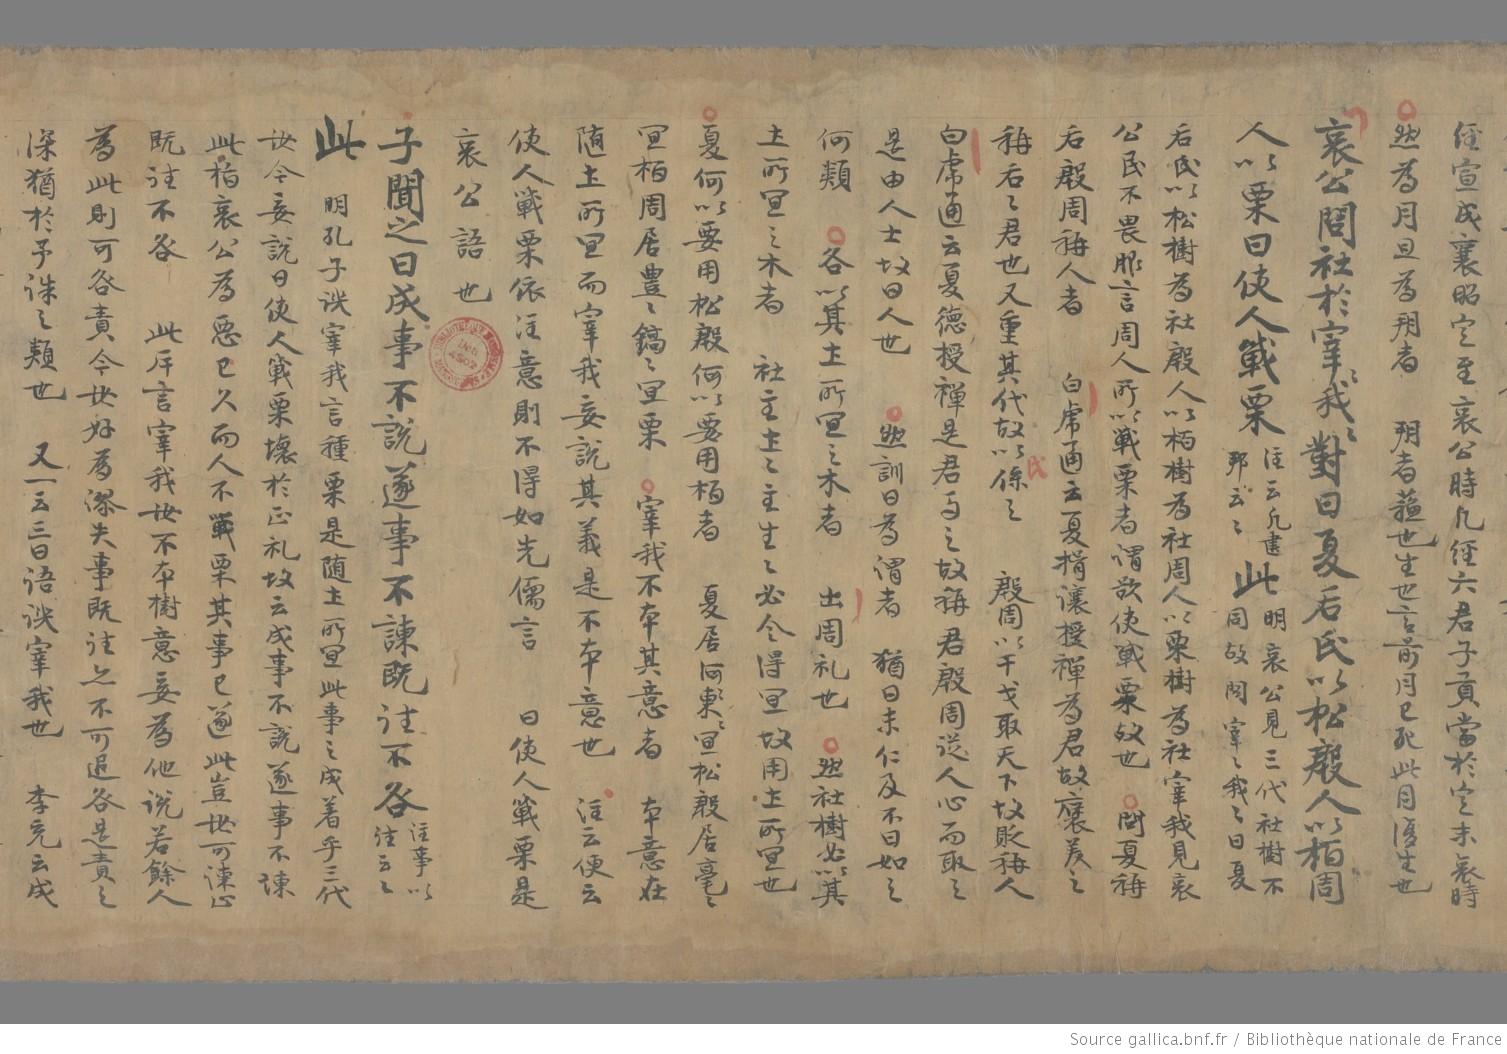 經宣成襄昭定至哀公時凡經六君子貢當於定末哀時
然為月旦為朔者 朔者蘓也生也言前月已死此月復生也
哀公問社於宰〻我〻對曰夏后氏以松殷人以栢周
人以栗曰使人戰栗 注云凡建邦云〻 此 明哀公見三代社樹不同故問宰〻我〻曰夏
后氏以松樹為社殷人以栢樹為社周人以栗樹為社宰我見哀
公民不畏服言周人所以戰栗者謂欲使戰栗故也 問夏稱
后殷周稱人者 白虎通云夏揖讓授禪為君故襃美之
稱后〻君也又重其代故以係之 殷周以干戈取天下故貶稱人
白虎通云夏德授禪是君与之故稱君殷周從人心而取之
是由人士故曰人也 然訓曰為謂者 猶曰未仁及不曰如之
何類 各以其土所冝之木者 出周礼也 然社樹必以其
土所冝之木者 社主土〻主生〻必令得冝故用土所冝也
夏何以要用松殷何以要用栢者 夏居河東〻冝松殷居亳〻
冝栢周居豊〻鎬〻冝栗 宰我不本其意者 本意在
随土所冝而宰我妄說其義是不本意也 注云便云
使人戰栗依注意則不得如先儒言 曰使人戰栗是
哀公語也
子聞之曰成事不說遂事不諫既往不咎 注事以往云〻
此 明孔子譏宰我言種栗是随土所冝此事之成著乎三代
世今妄說曰使人戰栗壞於正礼故云成事不說遂事不諫
此指哀公為惡已久而人不戰栗其事已遂此豈世可諫止
既往不咎 此斥言宰我世不本樹意妄為他說若餘人
為此則可咎責今世好為謬失事既往之不可追咎是責之
深猶於予誅之類也 又一云三曰語譏宰我也 李充云成